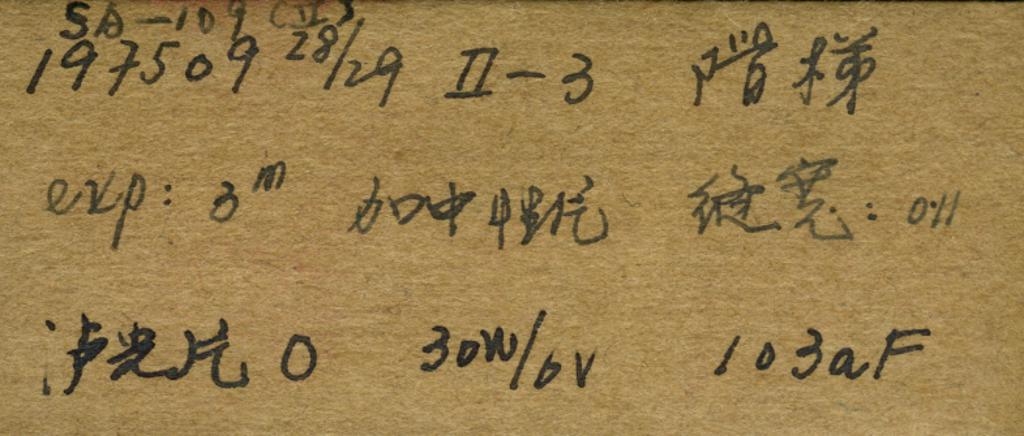 SA-109 (II)
197509 28/29 II-3 阶梯
exp: 3m 加中性片 缝宽: 0.11
滤光片 0 30W/6V 103aF